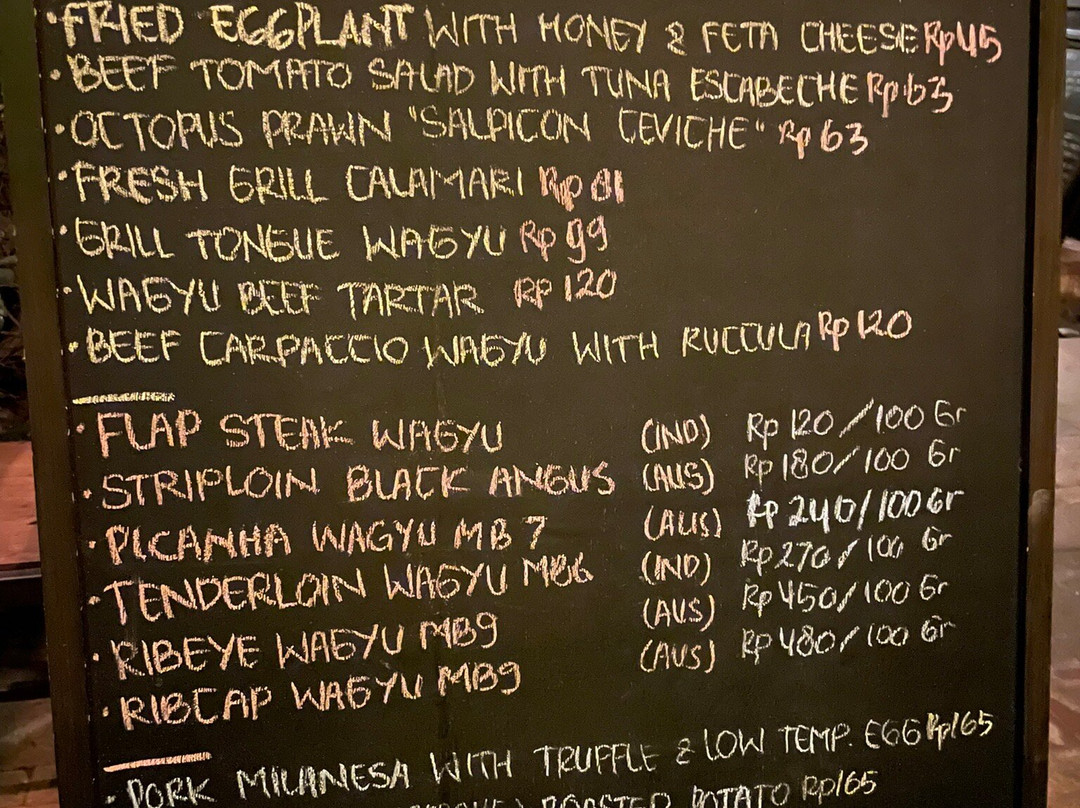 • FRIED EGGPLANT WITH HONEY & FETA CHEESE Rp 45
• BEEF TOMATO SALAD WITH TUNA ESCABECHE Rp 63
• OCTOPUS PRAWN "SALPICON CEVICHE" Rp 63
• FRESH GRILL CALAMARI Rp 81
• GRILL TONGUE WAGYU Rp 99
• WAGYU BEEF TARTAR RP 120
• BEEF CARPACCIO WAGYU WITH RUCCULA Rp 120
• FLAP STEAK WAGYU (IND) Rp 120/100 Gr
• STRIPLOIN BLACK ANGUS (AUS) Rp 180/100 Gr
• PICANHA WAGYU MB 7 (AUS) Rp 240/100 Gr
• TENDERLOIN WAGYU MB6 (IND) Rp 270/100 Gr
• RIBEYE WAGYU MB9 (AUS) Rp 450/100 Gr
• RIBCAP WAGYU MB9 (AUS) Rp 480/100 Gr
• PORK MILANESA WITH TRUFFLE & LOW TEMP. EGG Rp165
ROASTED POTATO Rp165